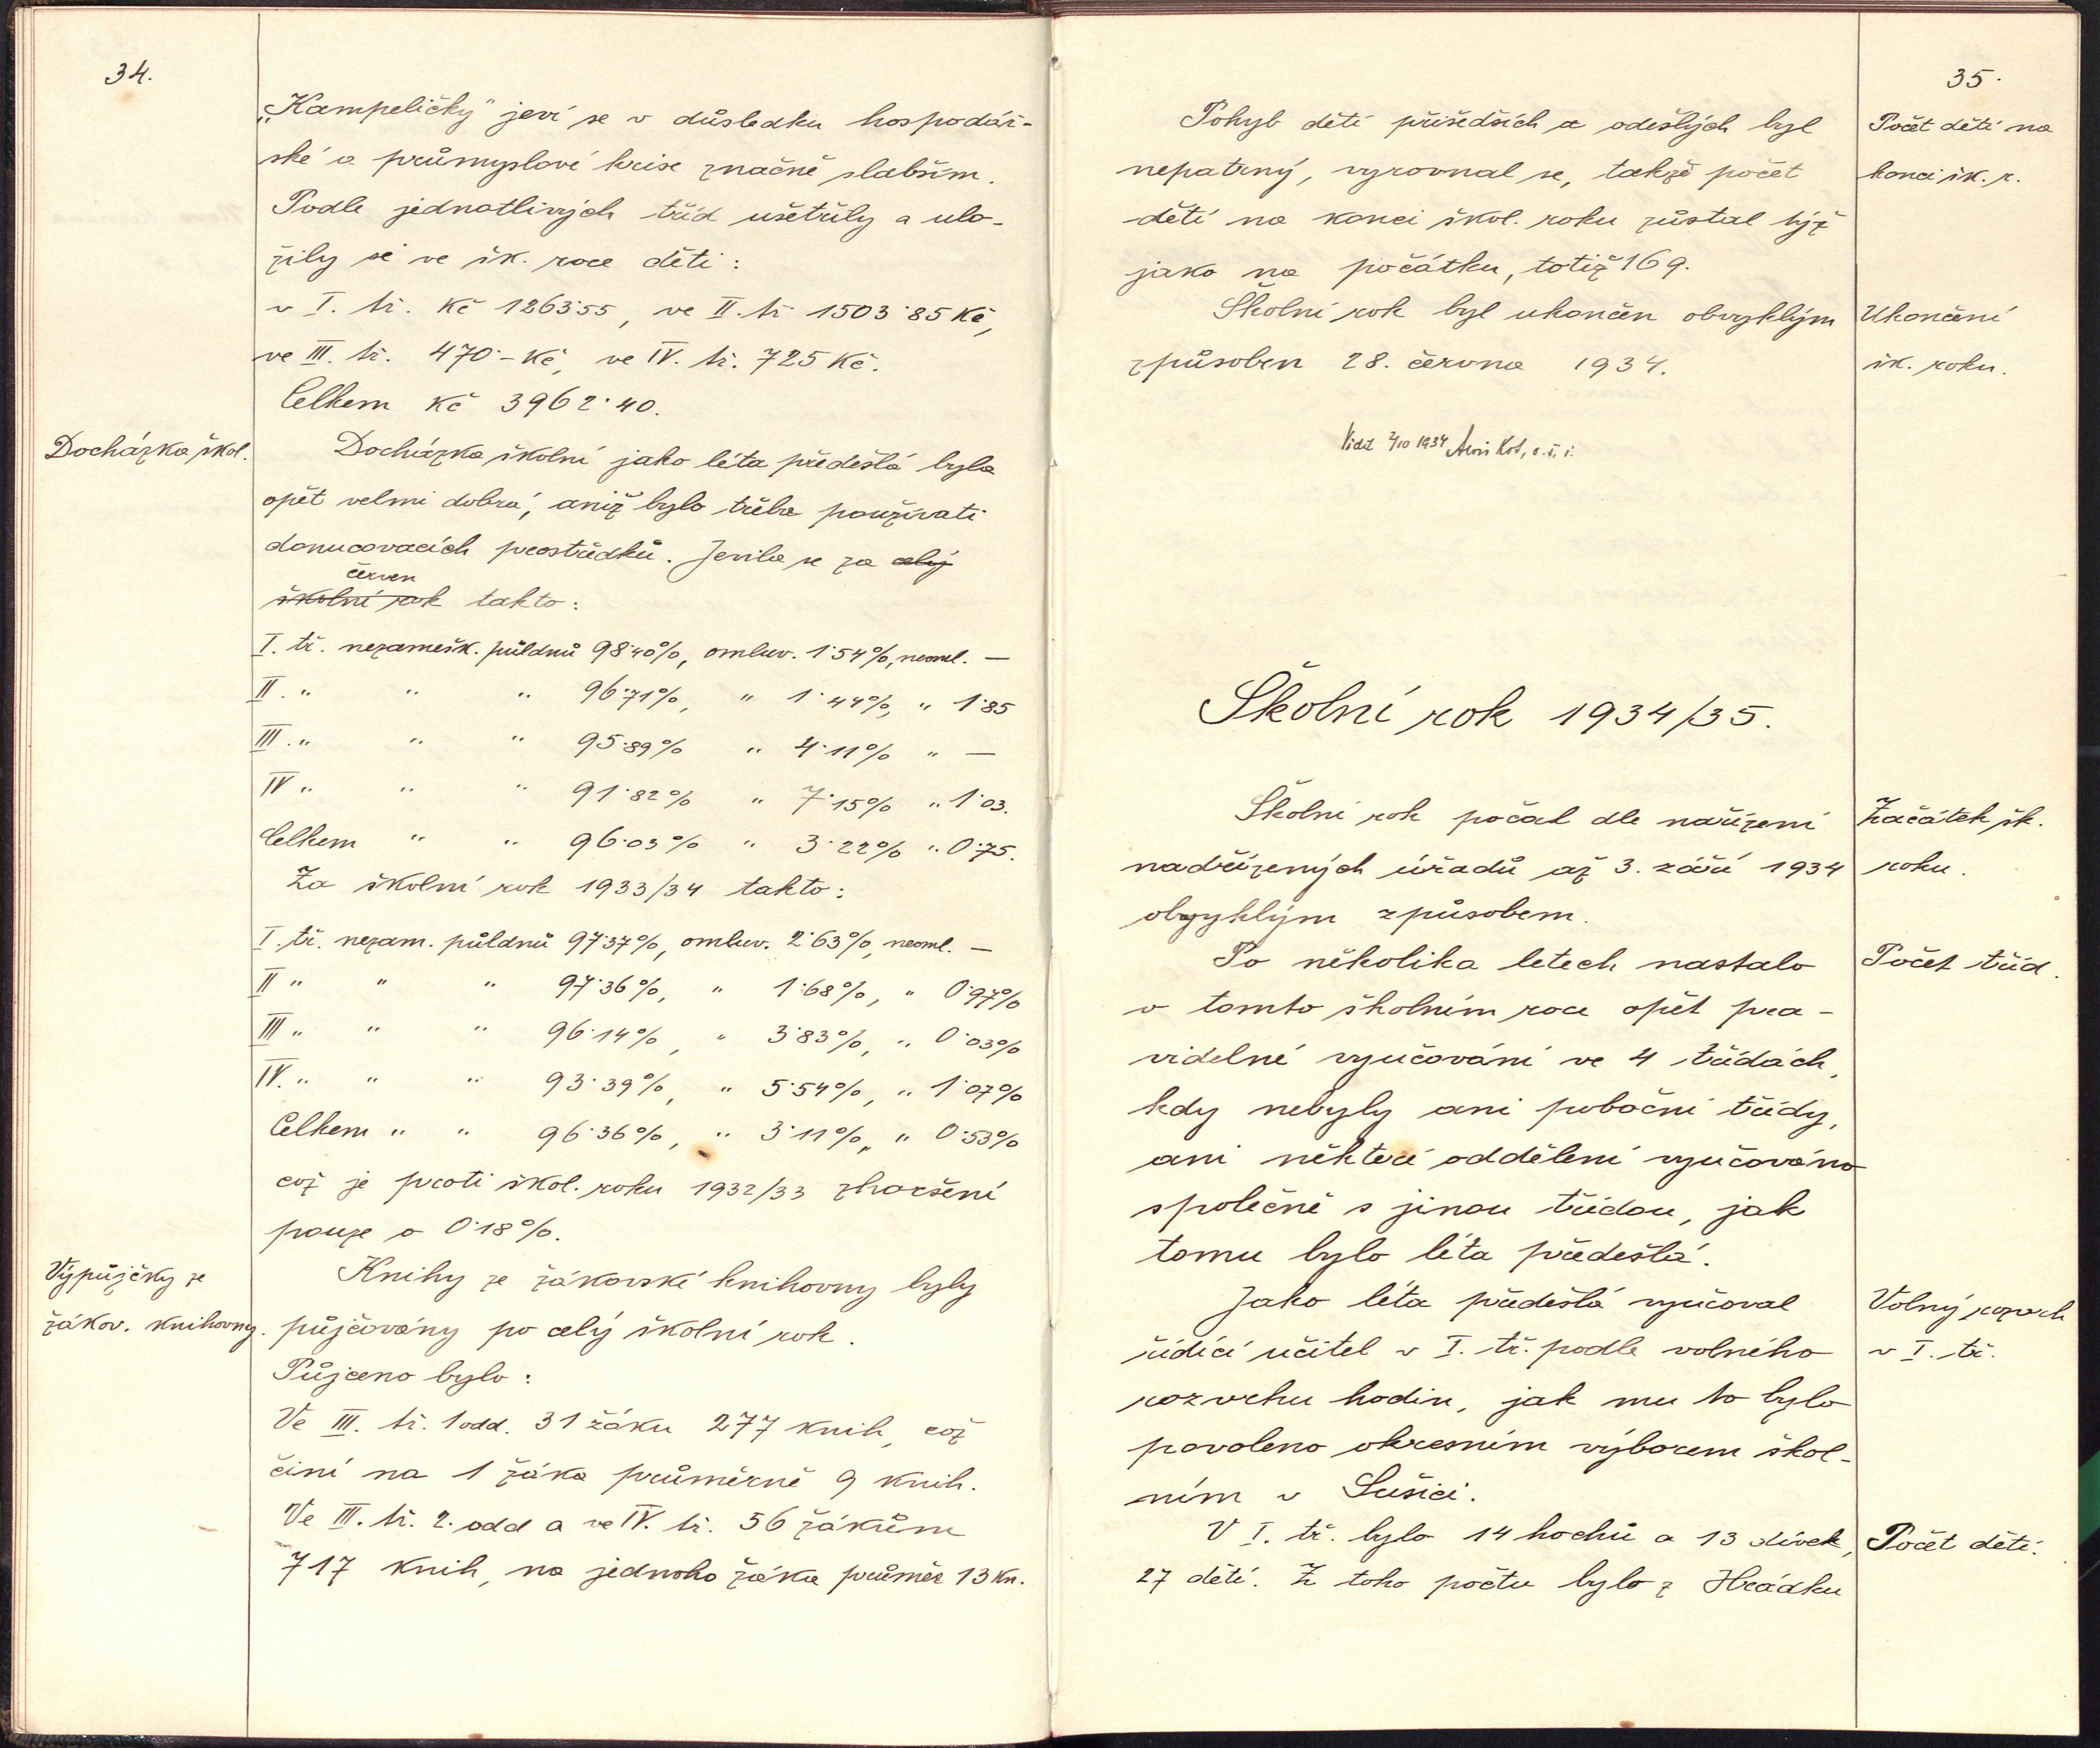 34.
„Kampeličky" jeví se v důsledku hospodář-
ské a průmyslové krise značně slabším.
Podle jednotlivých tříd ušetřily a ulo-
žily si ve šk. roce děti:
v I. tř. Kč 1263·55, ve II. tř. 1503·85 Kč,
ve III. tř. 470·- Kč, ve IV. tř. 725 Kč.
Celkem Kč 3962·40.
Docházka škol.
Docházka školní jako léta předešlá byla
opět velmi dobrá, aniž bylo třeba používati
donucovacích prostředků. Jevila se za celý
červen
školní rok takto:
I. tř. nezamešk. půldnů 98·40%, omluv. 1·54%, neoml. —
II. " " " 96·71%, " 1·44%, " 1·85
III. " " " 95·89% " 4·11% " —
IV " " " 91·82% " 7·15% " 1·03.
Celkem " " 96·03% " 3·22% " 0·75.
Za školní rok 1933/34 takto:
I. tř. nezam. půldnů 97·37%, omluv. 2·63%, neoml. —
II " " " 97·36%, " 1·68%, " 0·97%
III " " " 96·14%, " 3·83%, " 0·03%
IV. " " " 93·39%, " 5·54%, " 1·07%
Celkem " " 96·36%, " 3·11%, " 0·53%
což je proti škol. roku 1932/33 zhoršení
pouze o 0·18%.
Výpůjčky ze
žákov. knihovny.
Knihy ze žákovské knihovny byly
půjčovány po celý školní rok.
Půjčeno bylo:
Ve III. tř. 1 odd. 31 žáku 277 knih, což
činí na 1 žáka průměrně 9 knih.
Ve III. tř. 2. odd a ve IV. tř. 56 žákům
717 knih, na jednoho žáka průměr 13 kn.
35.
Pohyb dětí přišedších a odešlých byl
nepatrný, vyrovnal se, takže počet
dětí na konci škol. roku zůstal týž
jako na počátku, totiž 169.
Počet dětí na
konci šk. r.
Školní rok byl ukončen obvyklým
způsoben 28. června 1934.
Ukončení
šk. roku.
Vidit 2/10 1934 Kot, o. š. i.
Školní rok 1934/35.
Školní rok počal dle nařízení
nadřízených úřadů až 3. září 1934
obvyklým způsobem.
Začátek šk.
roku.
Po několika letech nastalo
v tomto školním roce opět pra-
videlné vyučování ve 4 třídách,
kdy nebyly ani pobočné třídy,
ani některé oddělení vyučováno
společně s jinou třídou, jak
tomu bylo léta předešlá.
Počet tříd.
Jako léta předešlá vyučoval
řídící učitel v I. tř. podle volného
rozvrhu hodin, jak mu to bylo
povoleno okresním výborem škol-
ním v Sušici.
Volný rozvrh
v I. tř.
V I. tř. bylo 14 hochů a 13 dívek,
27 dětí. Z toho počtu bylo z Hrádku
Počet dětí.